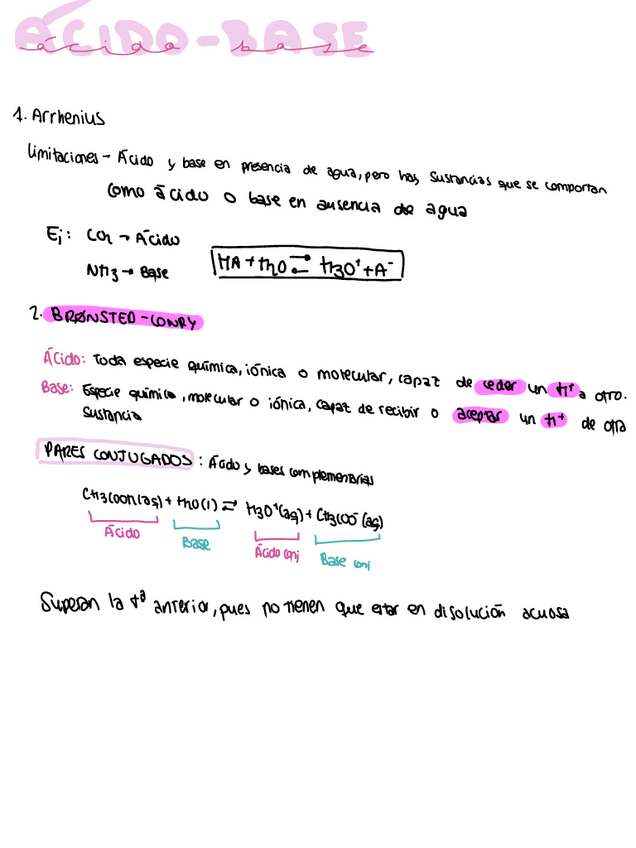 ÁCIDO-BASE
ácido base
1. Arrhenius
Limitaciones → Ácido y base en presencia de agua, pero hay sustancias que se comportan
como ácido o base en ausencia de agua
Ej: CO₂ → Ácido
NH3 → Base
HA + H2O ⇄ H3O⁺ + A⁻
2. BRØNSTED-LOWRY
Ácido: Toda especie química, iónica o molecular, capaz de ceder un H⁺ a otro.
Base: Especie química, molecular o iónica, capaz de recibir o aceptar un H⁺ de otra
sustancia
PARES CONJUGADOS: Ácido y bases complementarias
CH3COOH(aq) + H2O(l) ⇄ H3O⁺(aq) + CH3COO⁻(aq)
Ácido Base Ácido conj Base conj
Superan la tª anterior, pues no tienen que estar en disolución acuosa